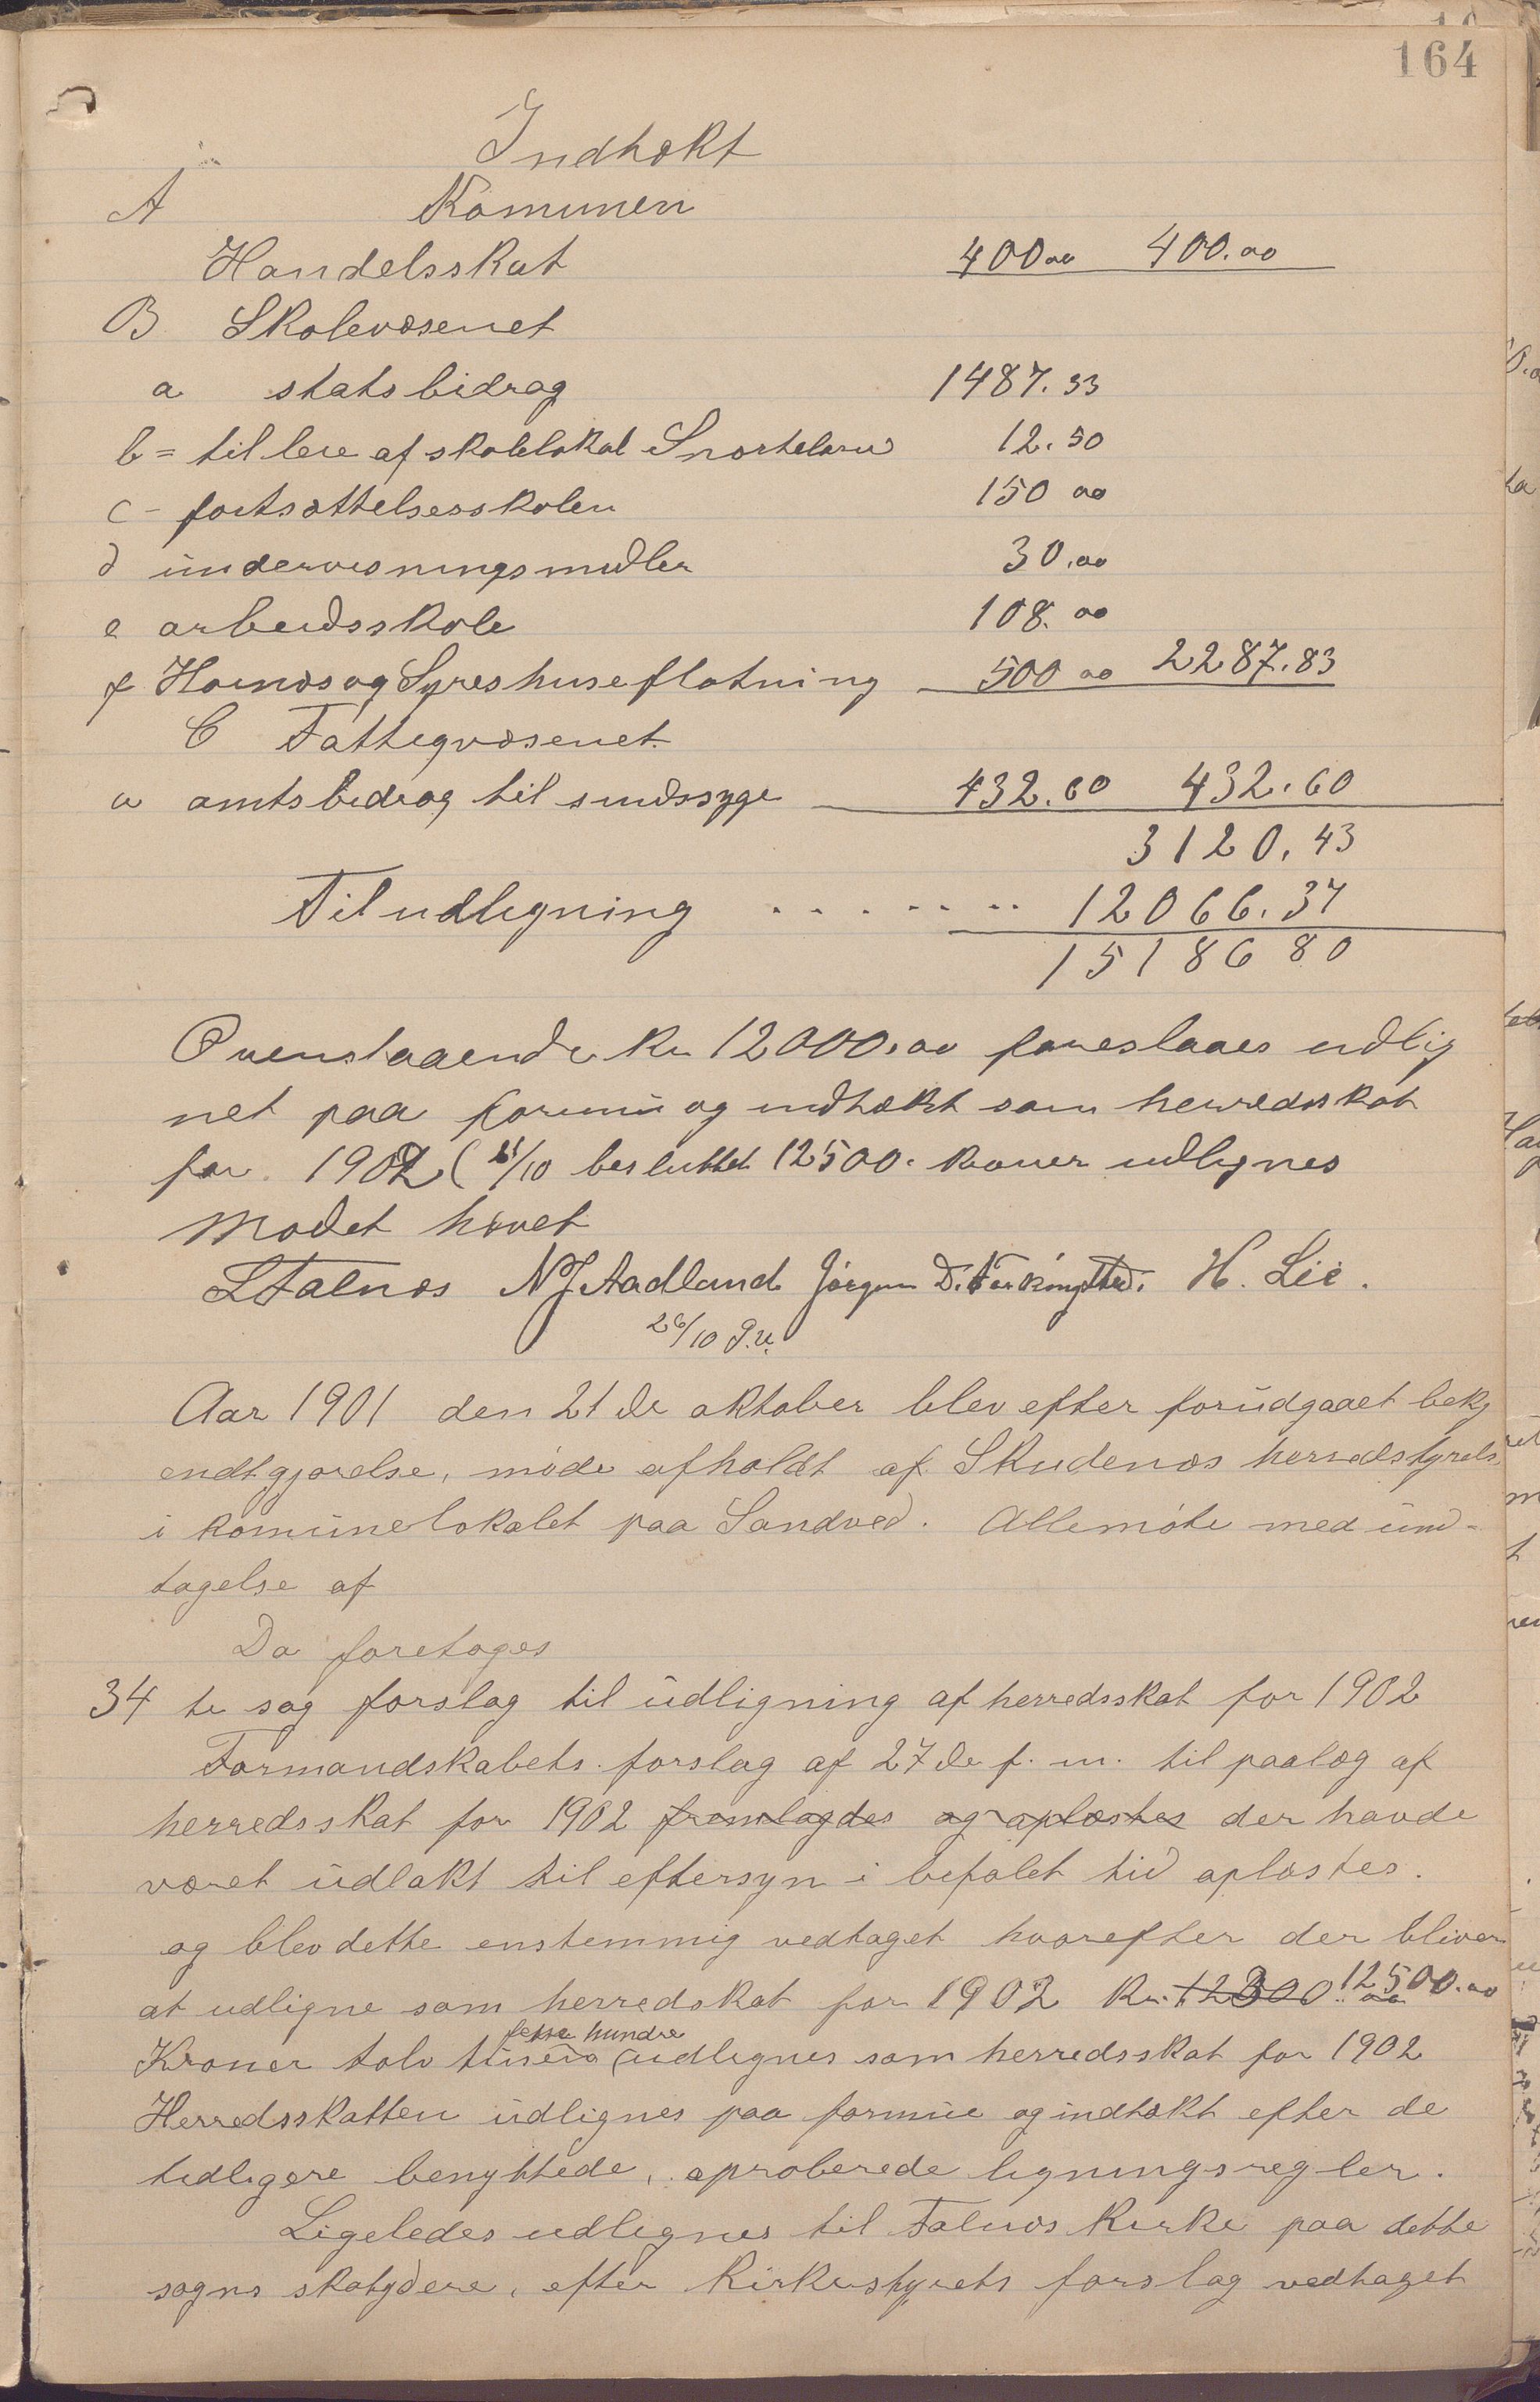 164
Indtækt
A Komunen
Handelsskat 400 00 400.00
B Skolevæsenet
a statsbidrag 1487.33
b = til leie af skolelokal Snørteland 12.50
c - fortsættelsesskolen 150 00
d undervisningsmidler 30.00
e arbeidsskole 108.00
f Hæinæs og Syreshuseflotning 500 00 2287.83
C Fattigvæsenet.
a amtsbidrag til sindssyge 432.60 432.60
3120.43
Til udligning . . . . . . . 12066.37
15186 80
Ovenstaaende Kr 12000.00 foreslaaes udlig
net paa formue og indtækt som herredsskat
for 1902 ( 21/10 besluttet 12500. kroner udlignes
Mødet hævet
L Falnæs N J Aadland Jørgen D. Ferkingstad. H. Lie.
26/10 P.U.
Aar 1901 den 21de oktober blev efter forudgaaet bekj
endtgjørelse, møde afholdt af Skudenæs herredstyrels
i komunelokalet paa Sandved. Alle møte med und-
tagelse af
Da foretoges
34 te sag forslag til udligning af herredsskat for 1902
Formandskabets forslag af 27de f. m. til paalæg af
herredsskat for 1902 fremlagdes og oplæstes der havde
været udlakt til eftersyn i befalet tid oplæstes.
og blev dette enstemmig vedtaget hvorefter der bliver
at udligne som herredskat for 1902 Kr. 12000 00 12500.00
Kroner tolv tusend (femhundre udlignes som herredsskat for 1902
Herredsskatten udlignes paa formue og indtækt efter de
tidligere benyttede, aproberede ligningsregler.
Ligeledes udlignes til Falnæs Kirke paa dette
sogns skatydere, efter Kirkestyrets forslag vedtaget